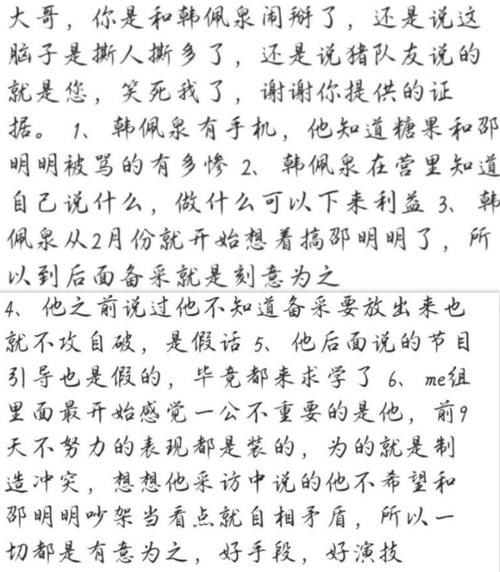 大哥，你是和韩佩泉闹掰了，还是说这
脑子是撕人撕多了，还是说猪队友说的
就是您，笑死我了，谢谢你提供的证
据。1、韩佩泉有手机，他知道糖果和邵
明明被骂的有多惨 2、韩佩泉在营里知道
自己说什么，做什么可以下来利益 3、韩
佩泉从2月份就开始想着搞邵明明了，所
以到后面备采就是刻意为之
4、他之前说过他不知道备采要放出来也
就不攻自破，是假话 5、他后面说的节目
引导也是假的，毕竟都来求学了 6、me组
里面最开始感觉一公不重要的是他，前9
天不努力的表现都是装的，为的就是制
造冲突，想想他采访中说的他不希望和
邵明明吵架当看点就自相矛盾，所以一
切都是有意为之，好手段，好演技